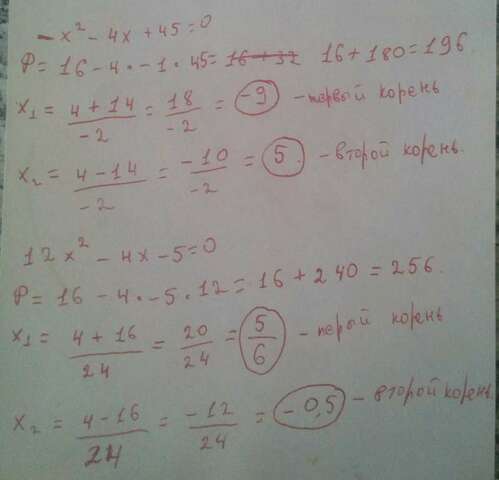 -x² - 4x + 45 = 0
D = 16 - 4 · -1 · 45 = 16 + 32 16 + 180 = 196.
x₁ = (4 + 14)/-2 = 18/-2 = -9 - первый корень
x₂ = (4 - 14)/-2 = -10/-2 = 5. - второй корень.
12x² - 4x - 5 = 0
D = 16 - 4 · -5 · 12 = 16 + 240 = 256.
x₁ = (4 + 16)/24 = 20/24 = 5/6 - перый корень
x₂ = (4 - 16)/24 = -12/24 = -0,5 - второй корень.